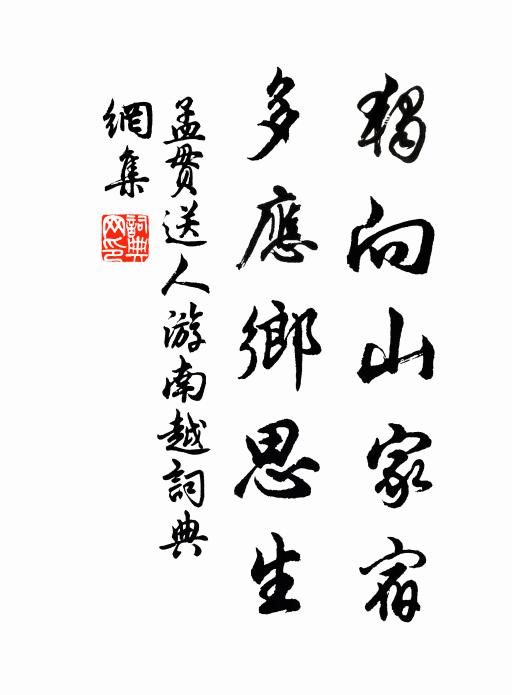 獨向山家宿
多應鄉思生
孟貫送人游南越詞典
網集
詞典
网印